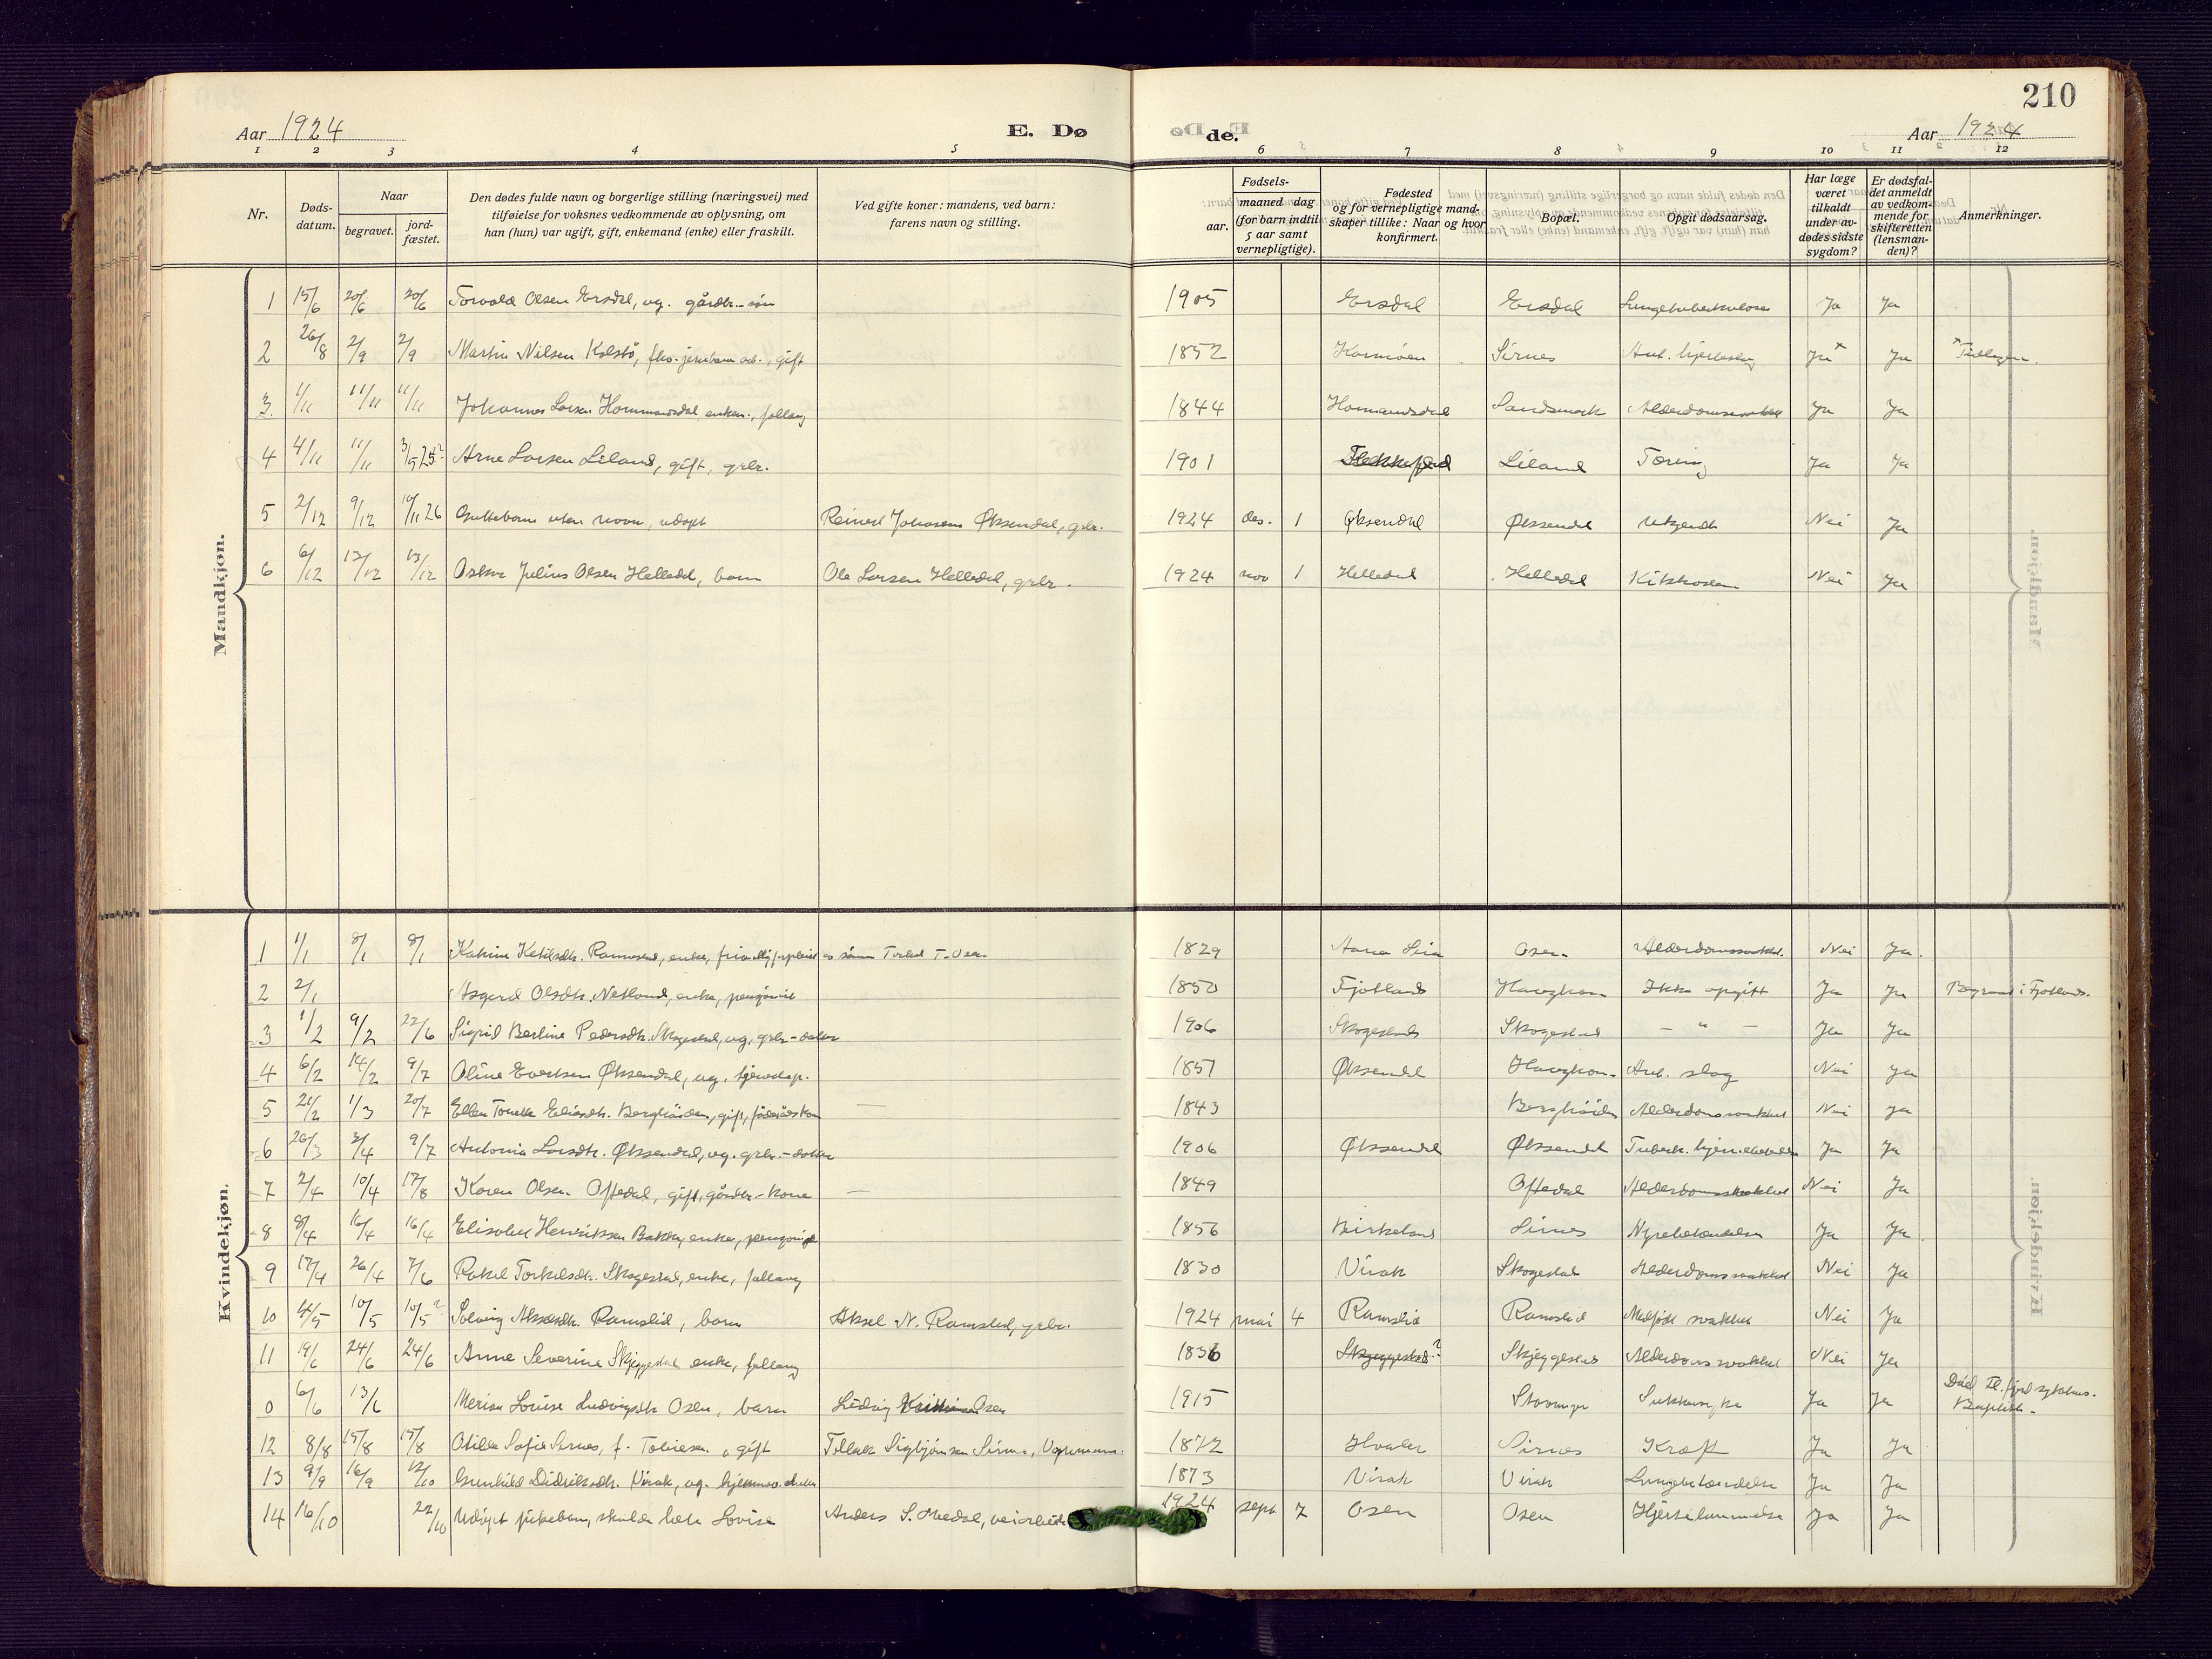 210
Aar 1924 E. Døde. Aar 1924
1 2 3 4 5 6 7 8 9 10 11 12
Nr. | Døds-datum. | Naar begravet. | jord-fæstet. | Den dødes fulde navn og borgerlige stilling (næringsvei) med tilføielse for voksnes vedkommende av oplysning, om han (hun) var ugift, gift, enkemand (enke) eller fraskilt. | Ved gifte koner: mandens, ved barn: farens navn og stilling. | Fødsels- aar. | maaned | dag (for barn indtil 5 aar samt vernepligtige). | Fødested og for vernepligtige mandskaper tillike: Naar og hvor konfirmert. | Bopæl. | Opgit dødsaarsag. | Har læge været tilkaldt under avdødes sidste sygdom? | Er dødsfaldet anmeldt av vedkommende for skifteretten (lensmanden)? | Anmerkninger.
Mandkjøn.
1 15/6 20/6 20/6 Torvald Olsen Ersdal, ug. gårdbr.-søn 1905 Ersdal Ersdal Lungetuberkulose Ja Ja
2 26/8 2/9 2/9 Martin Nilsen Kolstö, gift 1852 Karmöen Sirnes Ant. hjerteslag Ja x Ja x
3 1/11 11/11 11/11 Johannes Larsen Hommansdal, enkem., fattig 1844 Hommansdal Sandsmark Alderdomssvakhet Ja Ja
4 4/11 11/11 3/5 25? Arne Larsen Liland, gift, grbr. 1901 Flekkefjord Liland Tæring Ja Ja
5 2/12 9/12 10/11 26 Guttebarn uten navn, udøpt Reinert Johansen Øksendal, grbr. 1924 des. 1 Øksendal Øksendal Ukjendt Nei Ja
6 6/12 13/12 13/12 Oskar Julius Olsen Helledal, barn Ole Larsen Helledal, grbr. 1924 nov 1 Helledal Helledal Kikhoste Nei Ja
Kvindekjøn.
1 1/1 8/1 8/1 Katrine Ketilsdtr. enke, sønn Torkel T. Osen 1829 Aana Sira Osen Alderdomssvakhet. Nei Ja.
2 2/1 Asgerd Olsdtr. Netland, enke, pensjonist 1850 Fjotland Haughom Ikke opgitt Ja Ja Begravet i Fjotland.
3 1/2 9/2 22/6 Sigrid Berline Pedersdtr. Skogestad, ug. grbr-datter 1906 Skogestad Skogestad — " — Ja Ja
4 6/2 14/2 9/7 Oline Evertsen Øksendal, ug. 1851 Øksendal Haughom Ant. slag Nei Ja
5 21/2 1/3 20/7 Ellen Tonette Eliasdtr. Berghöiden, gift, föderådskone — 1843 Berghöiden Alderdomssvakhet Nei Ja
6 26/3 3/4 9/7 Antonia Larsdtr. Øksendal, ug. grbr.-datter 1906 Øksendal Øksendal Tuberk. hjernebetendelse Ja Ja
7 2/4 10/4 17/8 Karen Olsen Oftedal, gift, gårdbr-kone — 1849 Oftedal Alderdomssvakhet Nei Ja
8 8/4 16/4 16/4 Elisabet Henriksen Bakke, enke, pensjonist 1856 Birkeland Sirnes Nyrebetendelse Ja Ja
9 17/4 26/4 7/6 Rakel Torkelsdtr. Skogestad, enke, fattig 1830 Virak Skogestad Alderdomssvakhet Nei Ja
10 4/5 10/5 10/5? Solveig Akselsdtr. Ramslid, barn Aksel N. Ramslid, grbr. 1924 mai 4 Ramslid Ramslid Medfødt svakhet Nei Ja
11 19/6 24/6 24/6 Anne Severine Skjeggestad enke, fattig 1836 Skjeggestad? Skjeggestad Alderdomssvakhet Nei Ja
0 6/6 13/6 Louise Ludvigsdtr Osen, barn Ludvig Kristiansen Osen 1915 Stavanger Sukkersyke Ja Ja Død Fl.fjord sykehus. Baptist.
12 8/8 15/8 15/8 Otilde Sofie Sirnes, f. Tobiesen, gift Tollak Sigbjörnsen Sirnes, 1872 Hvaler Sirnes Kræft Ja Ja
13 9/9 16/9 12/10 Gunhild Didriksdtr. Virak, ug. 1873 Virak Virak Lungebetendelse Ja Ja
14 16/10 22/10 Udöpt pikebarn, skulde hete Lovise Anders S. Medal, veiarbeider 1924 sept 7 Osen Osen Hjertelammelse Ja Ja